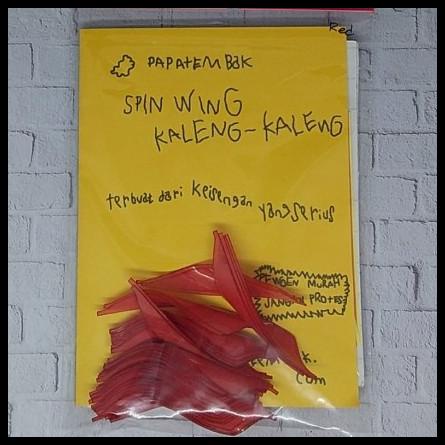 Red
PAPATEMBAK
SPIN WING
KALENG-KALENG
terbuat dari Keisengan yang serius
PENGEN MURAH
JANGAN PROTES
.com